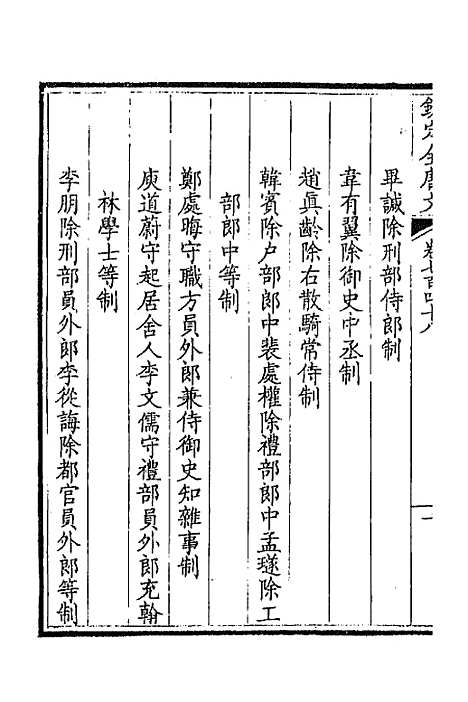 欽定全唐文 卷七百四十八 一
畢諴除刑部侍郎制
韋有翼除御史中丞制
趙真齡除右散騎常侍制
韓賓除户部郎中裴處權除禮部郎中孟璲除工
部郎中等制
鄭處晦守職方員外郎兼侍御史知雜事制
庾道蔚守起居舍人李文儒守禮部員外郎充翰
林學士等制
李朋除刑部員外郎李從誨除都官員外郎等制